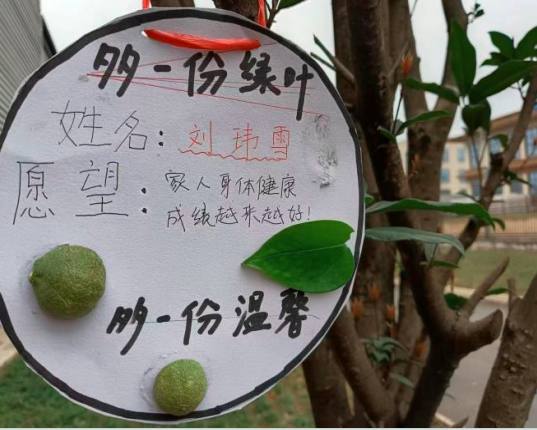 多一份绿叶
姓名：刘玮雪
愿望：家人身体健康
成绩越来越好！
多一份温馨